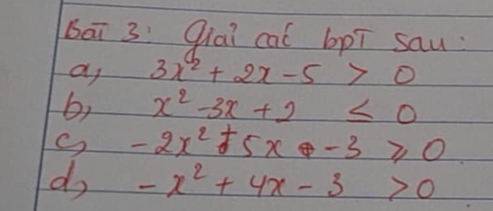 Bài 3: Giải các bpT sau:
a, 3x² + 2x - 5 > 0
b, x² - 3x + 2 ≤ 0
c, -2x² + 5x - 3 ≥ 0
d, -x² + 4x - 3 > 0